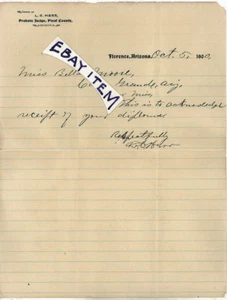 L. C. HERR,
Probate Judge, Pinal County,
Florence, Arizona, Oct 5, 190
Miss Bella Moore,
Grande, Ariz.
Miss
This is to acknowledge
receipt of your diploma
Respectfully
EBAY ITEM